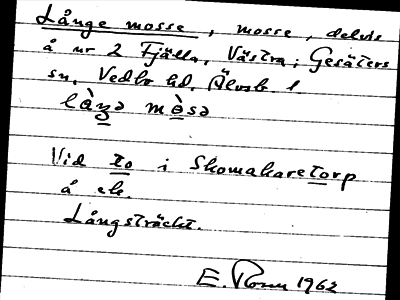 Långe mosse, mosse, delvis
å nr 2 Fjälla, Västra; Gesäters
sn, Vedbo hd, Älvsb l
làŋə mòsə
Vid to i Skomakaretorp
å ek.
Långsträckt.
E. 1962